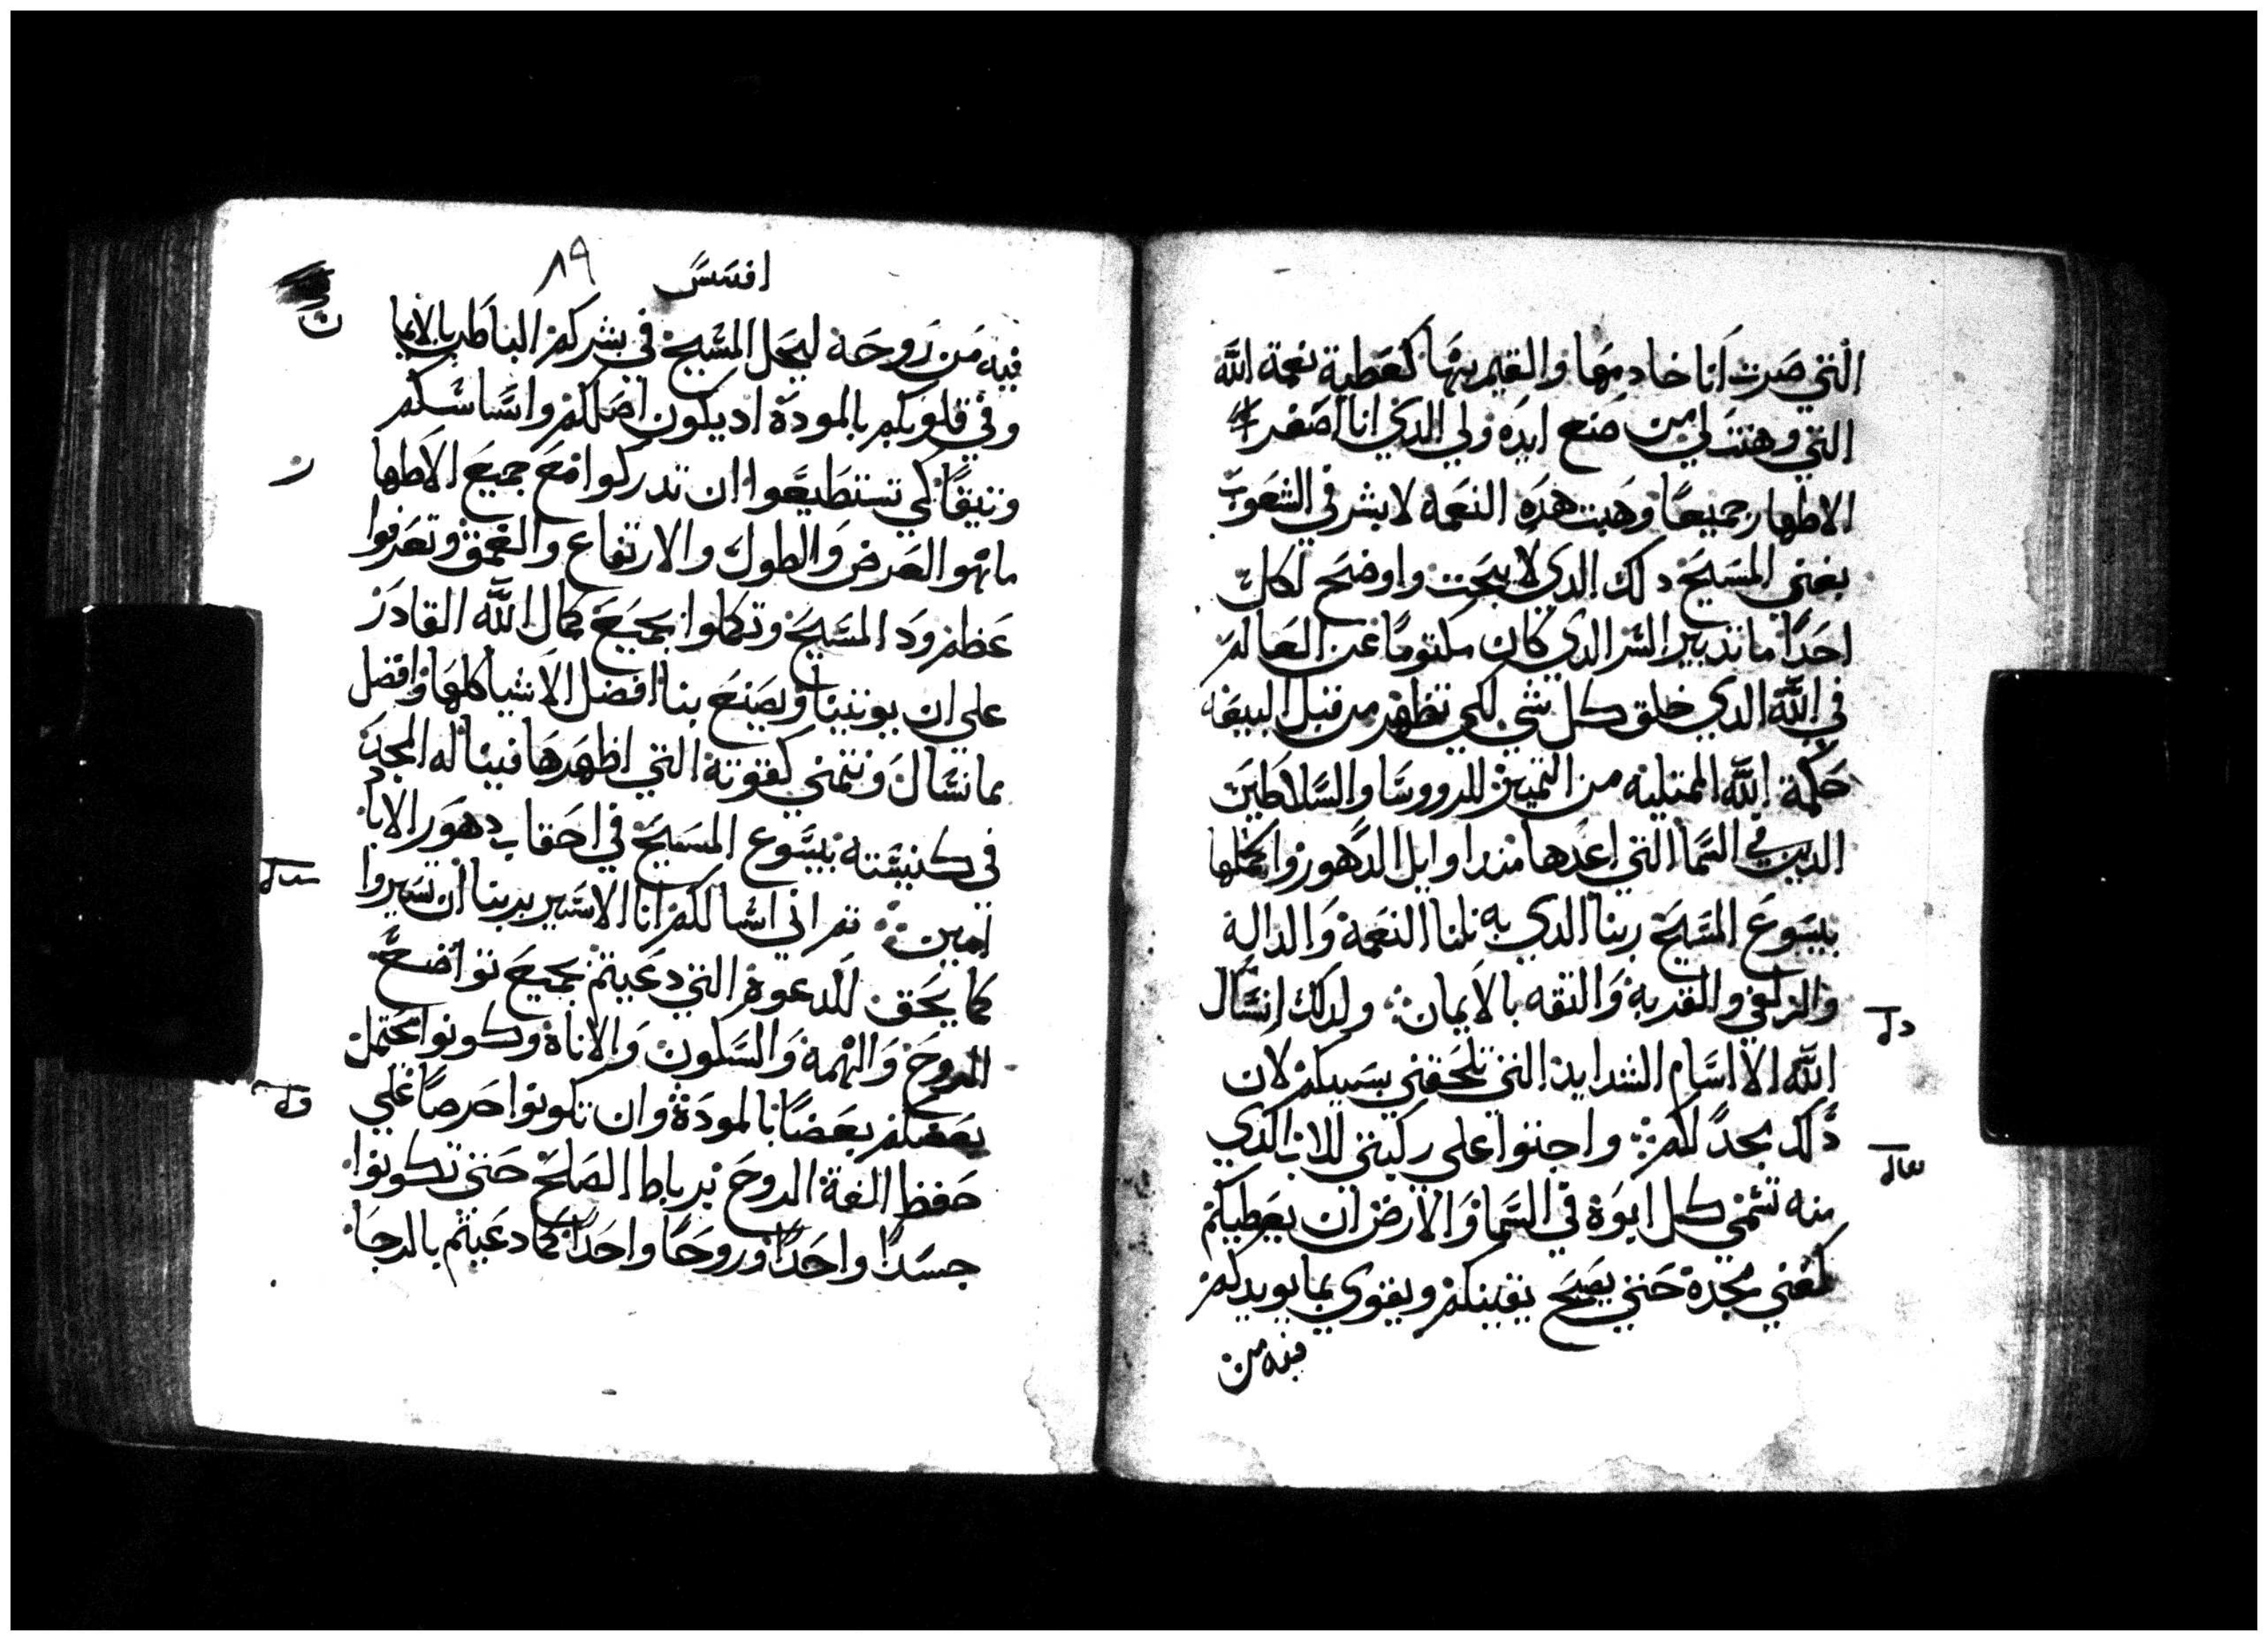 التي صرت انا خادمها والقيم بها كعطية نعمة الله
التي وهبت لي من صنع ايده ولي الذي انا اصغر
الاطهار جميعا وهبت هذه النعمه لابشر في الشعوب
بغني المسيح دلك الدي لا يبحت واوضح لكل
احدا ما تدبير السر الدي كان مكتوما عن العالم
في الله الدي خلق كل شي لكي تظهر من قبل البيعه
حكمة الله الممتليه من التمييز للرووسا والسلاطين
الدين في السما التي اعدها مند اوايل الدهور واكملها
بيسوع المسيح ربنا الدي به نلنا النعمة والدالة
والزلفي والقدبة والتقه بالايمان ولدلك اسال
الله الا اسام الشدايد التي تلحقني بسببكم لان
دلك مجد لكم واجتوا علي ركبتي للاب الدي
منه تسمي كل ابوة في السما والارض ان يعطيكم
كغني مجده حتي يصح يقينكم ويقوي بما يويدكم
فيه من
افسس ٨٩
فيه من روحه ليحل المسيح في بشركم الباطن بالايما
ن
وفي قلوبكم بالمودة اد يكون اصلكم واساسكم
وتيقا كي تستطيعوا ان تدركوا مع جميع الاطها
ر
ما هو العرض والطول والارتفاع والعمق وتعرفوا
عظم ود المسيح وتكملوا بجميع كمال الله القادر
علي ان يوتينا ويصنع بنا افضل الاشيا كلها وافضل
مما نسال ونتمني كقوته التي اظهرها فينا له المجد
في كنيسته بيسوع المسيح في احقاب دهور الاباد
امين تم اني اسالكم انا الاسير بربنا ان تسيروا
كما يحق للدعوة التي دعيتم بجميع تواضع
الروح والهمة والسكون والاناة وكونوا محتملن
بعضكم بعضا بالمودة وان تكونوا حرصا علي
حفظ الفة الروح برباط الصلح حتي تكونوا
جسدا واحدا وروحا واحدا كما دعيتم بالرجا